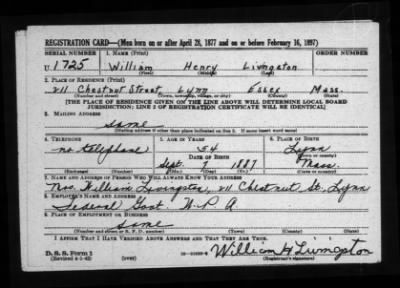 REGISTRATION CARD—(Men born on or after April 28, 1877 and on or before February 16, 1897)
SERIAL NUMBER 1. NAME (Print) ORDER NUMBER
U 1725 William Henry Livingston
(First) (Middle) (Last)
2. PLACE OF RESIDENCE (Print)
211 Chestnut Street Lynn Essex Mass.
(Number and street) (Town, township, village, or city) (County) (State)
[THE PLACE OF RESIDENCE GIVEN ON THE LINE ABOVE WILL DETERMINE LOCAL BOARD
JURISDICTION; LINE 2 OF REGISTRATION CERTIFICATE WILL BE IDENTICAL]
3. MAILING ADDRESS
same
[Mailing address if other than place indicated on line 2. If same insert word same]
4. TELEPHONE 5. AGE IN YEARS 6. PLACE OF BIRTH
no telephone 54 Lynn
DATE OF BIRTH (Town or county)
Sept. 7 1887 Mass.
(Mo.) (Day) (Yr.) (State or country)
7. NAME AND ADDRESS OF PERSON WHO WILL ALWAYS KNOW YOUR ADDRESS
Mrs. William Livingston, 211 Chestnut St. Lynn
8. EMPLOYER'S NAME AND ADDRESS
Federal Govt W.P.A
9. PLACE OF EMPLOYMENT OR BUSINESS
same
(Number and street or R. F. D. number) (Town) (County) (State)
I AFFIRM THAT I HAVE VERIFIED ABOVE ANSWERS AND THAT THEY ARE TRUE.
D. S. S. Form 1
(Revised 4-1-42) (over) William H Livingston
(Registrant's signature)